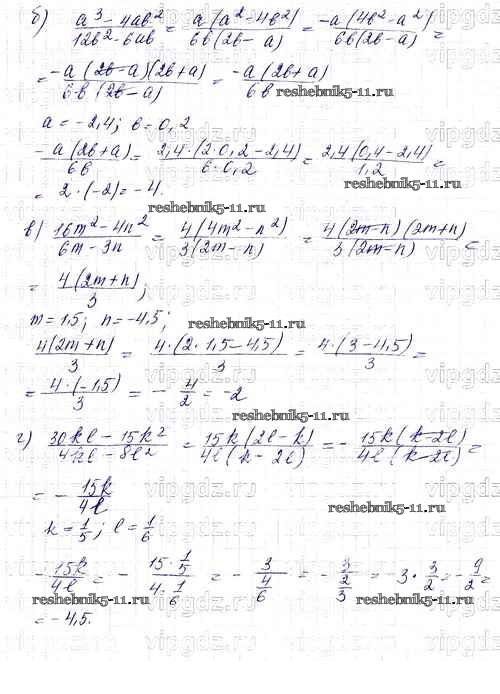 б) (a³ - 4ab²)/(12b² - 6ab) = a(a² - 4b²)/(6b(2b - a)) = -a(4b² - a²)/(6b(2b - a)) =
= -a(2b - a)(2b + a)/(6b(2b - a)) = -a(2b + a)/(6b)
reshebnik5-11.ru
a = -2,4; b = 0,2
-a(2b + a)/(6b) = 2,4·(2·0,2 - 2,4)/(6·0,2) = 2,4(0,4 - 2,4)/(1,2) =
reshebnik5-11.ru
= 2·(-2) = -4.
reshebnik5-11.ru
в) (16m² - 4n²)/(6m - 3n) = 4(4m² - n²)/(3(2m - n)) = 4(2m - n)(2m + n)/(3(2m - n)) =
= 4(2m + n)/3;
m = 1,5; n = -4,5;
reshebnik5-11.ru
4(2m + n)/3 = 4·(2·1,5 - 4,5)/3 = 4·(3 - 4,5)/3 =
= 4·(-1,5)/3 = -4/2 = -2
reshebnik5-11.ru
г) (30kl - 15k²)/(4kl - 8l²) = 15k(2l - k)/(4l(k - 2l)) = -15k(k - 2l)/(4l(k - 2l)) =
= -15k/4l
reshebnik5-11.ru
k = 1/5; l = 1/6
-15k/4l = -(15·1/5)/(4·1/6) = -3/(4/6) = -3/(2/3) = -3·3/2 = -9/2 =
reshebnik5-11.ru
reshebnik5-11.ru
= -4,5.
vipgdz.ru